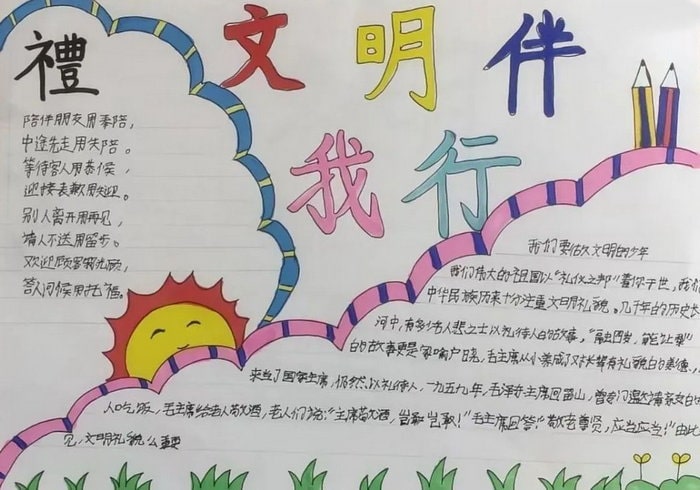 禮
文明伴
我行
陪伴朋友用奉陪，
中途先走用失陪。
等待客人用恭候，
迎接表歉用失迎。
别人离开用再见，
请人不送用留步。
欢迎顾客称光顾，
答人问候用托福。
我们要做文明的少年
我们伟大的祖国以“礼仪之邦”著你于世，我们
中华民族历来十分注重文明礼貌。几千的历史长
河中，有多仁人志士以礼待人的故事，
的故事更是家喻户晓，毛主席从小养成了对长辈有礼貌的美德，
来当了国家主席，仍然以礼待人，一九五九年，毛泽东主席回韶山，曾专门邀请
人吃饭，毛主席给老人敬酒，老人们说：“主席敬酒，岂敢岂敢！”毛主席回答：“敬老尊贤，应当应当！”由此
见，文明礼貌么重要